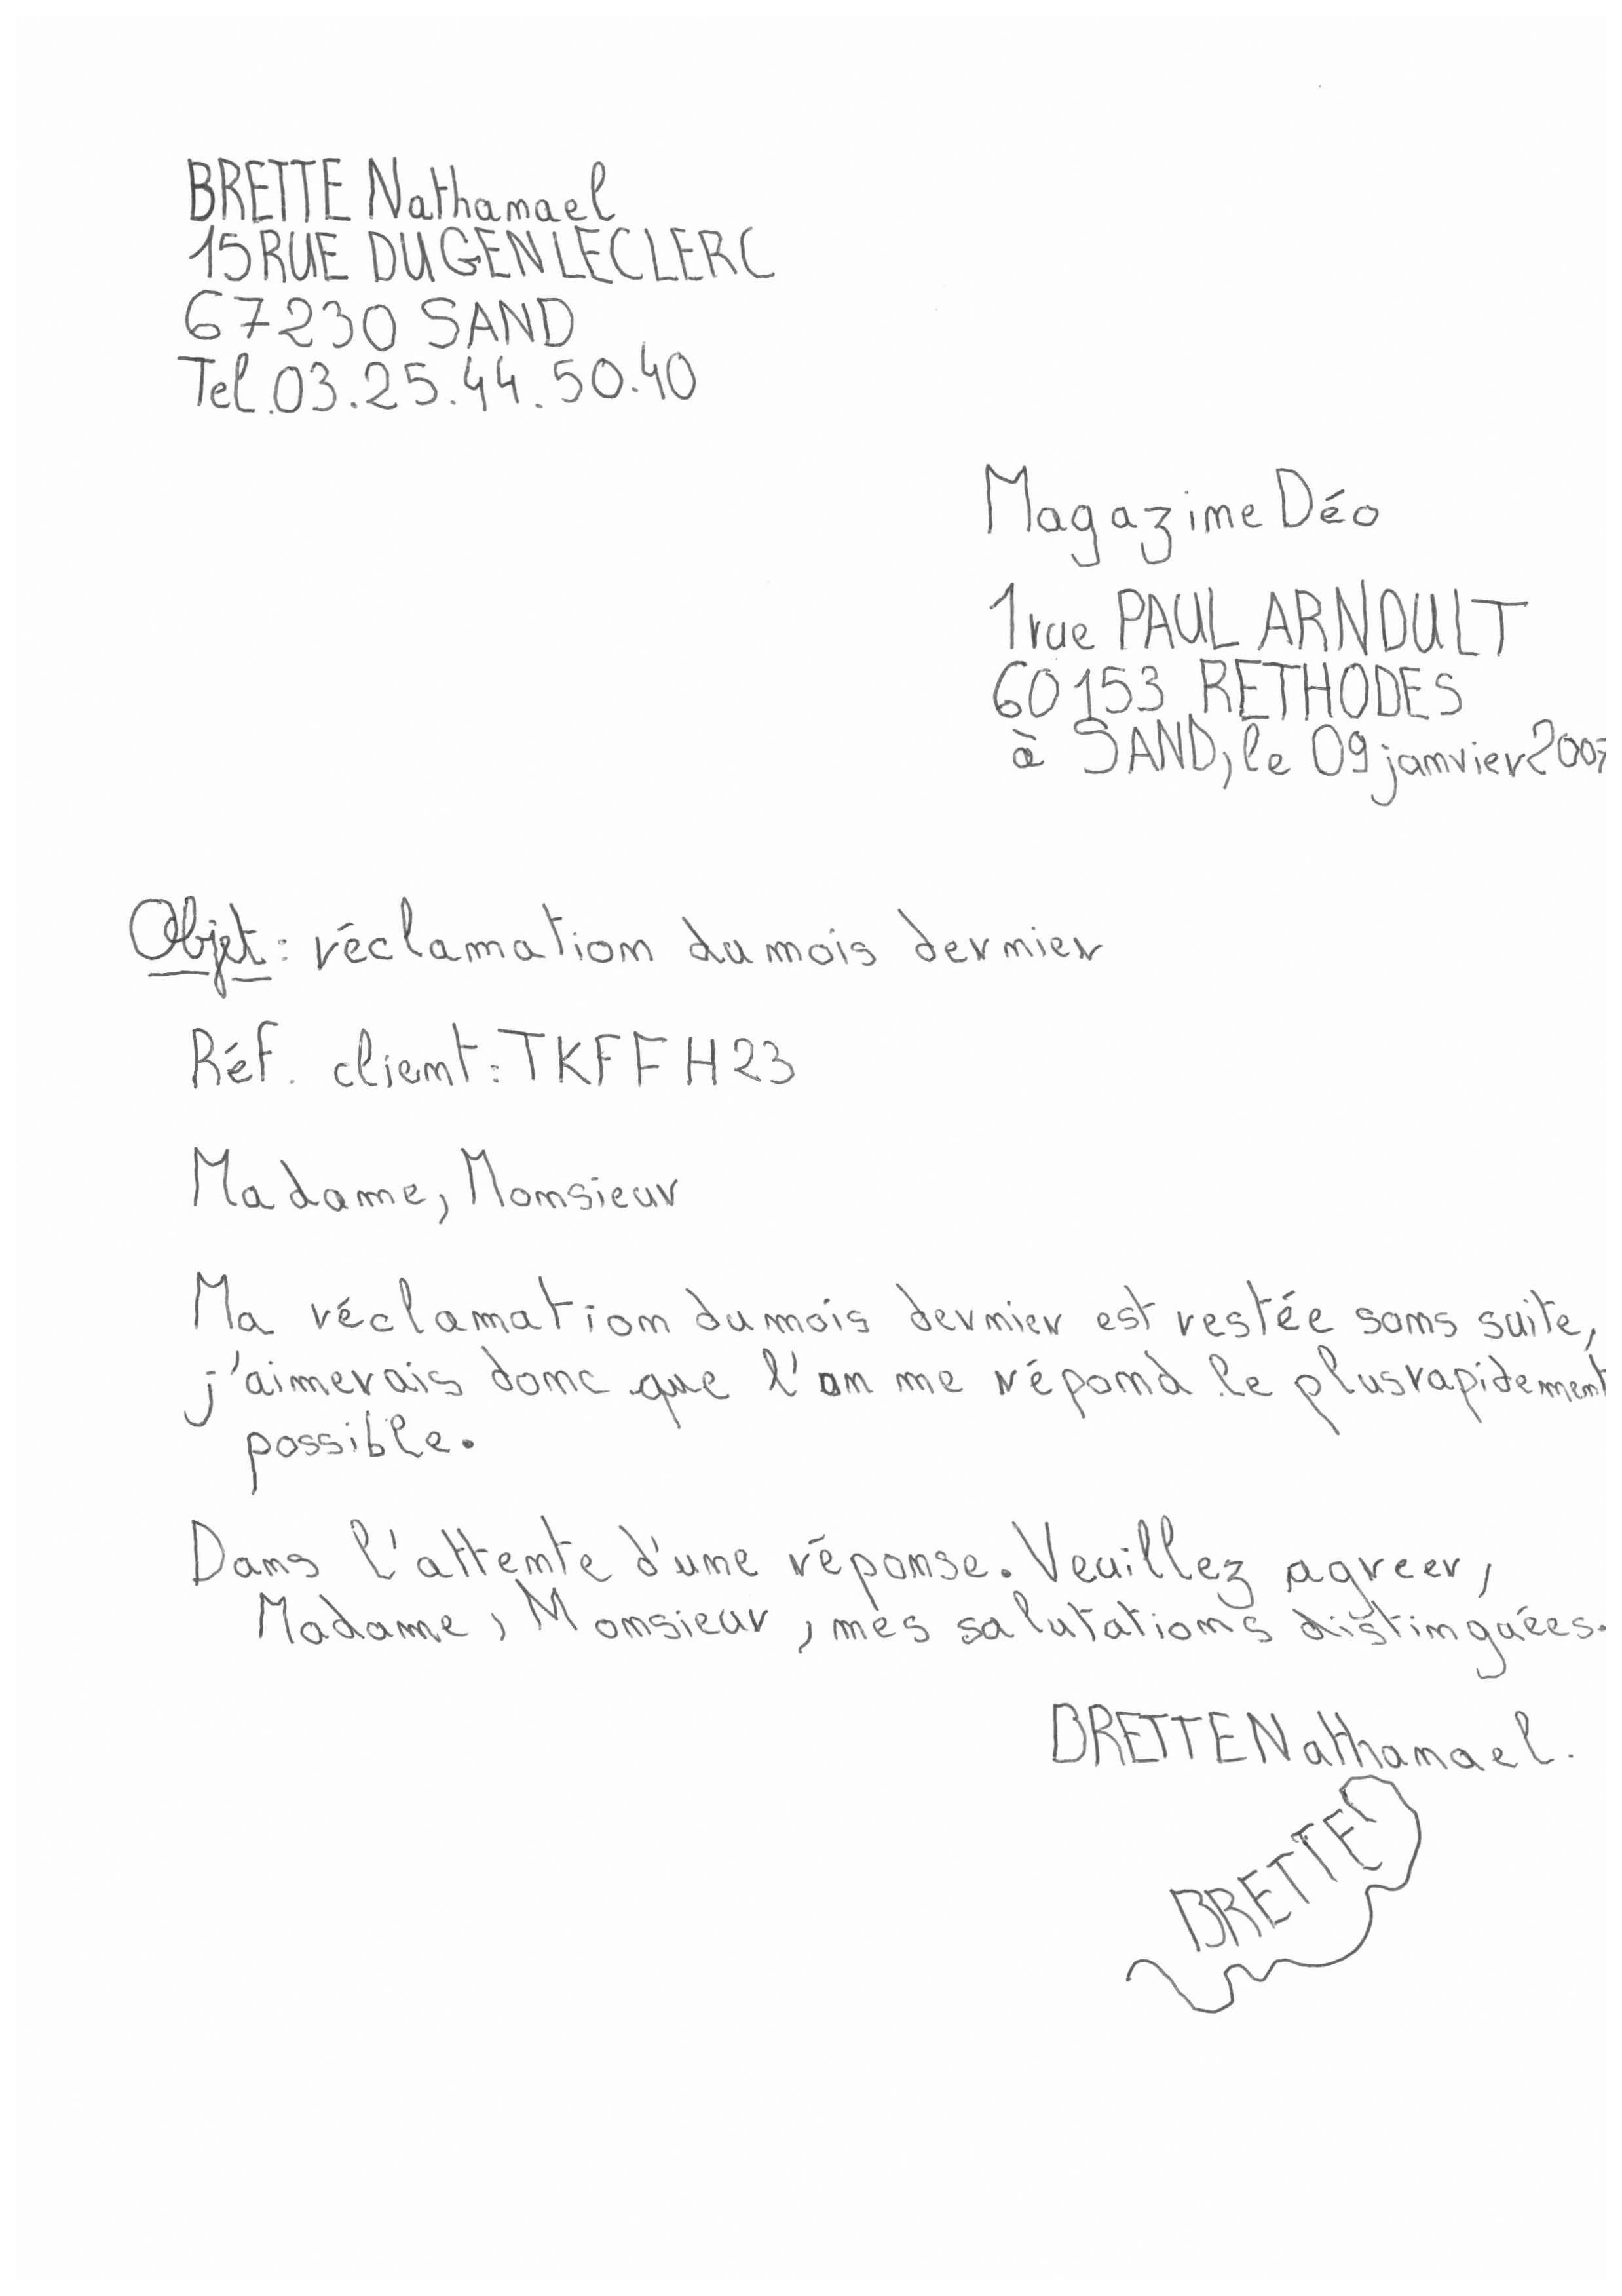 BRETTE Nathanael
15 RUE DU GEN LECLERC
67230 SAND
Tel.03.25.44.50.40
Magazine Déo
1 rue PAUL ARNOULT
60153 RETHODES
à SAND, le 09 janvier 2007
Objet : réclamation du mois dernier
Réf. client : TKFFH23
Madame, Monsieur
Ma réclamation du mois dernier est restée sans suite,
j'aimerais donc que l'on me répond le plus rapidement
possible.
Dans l'attente d'une réponse. Veuillez agreer,
Madame, Monsieur, mes salutations distinguées.
BRETTE Nathanael.
BRETTE